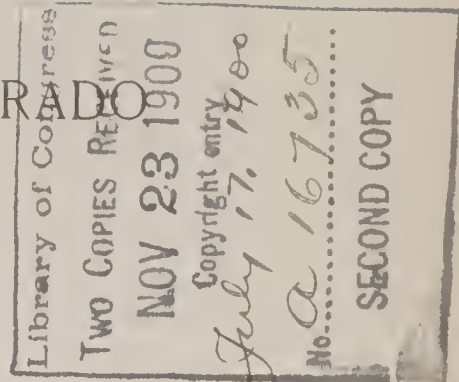 RADO
Library of Congress
TWO COPIES RECEIVED
NOV 23 1900
Copyright entry
July 17, 1900
No. a 16735
SECOND COPY